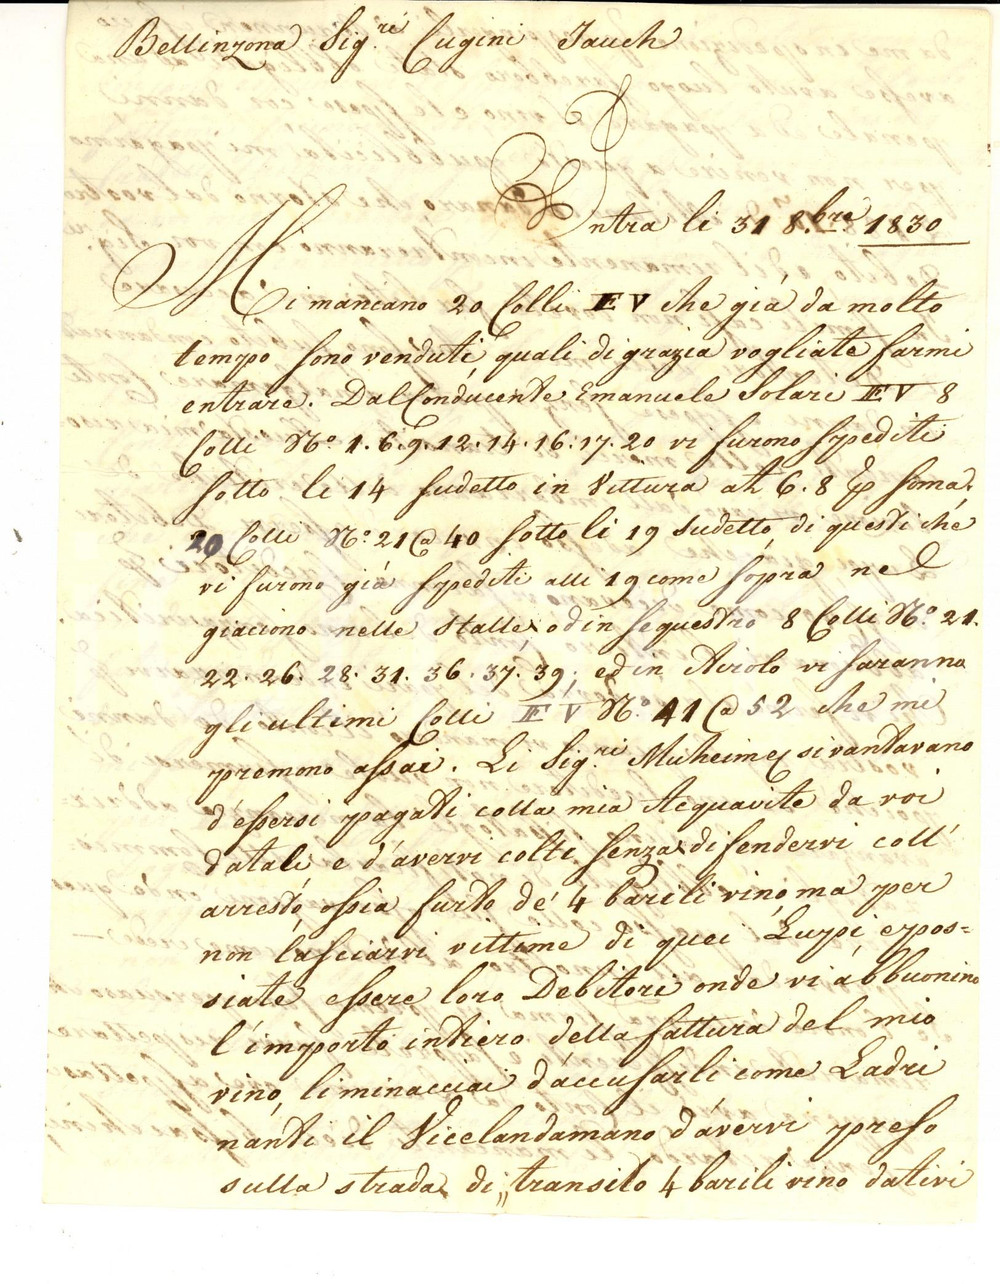 Bellinzona Sig.ri Cugini Jauch
Intra li 31 8.bre 1830
Mi mancano 20 Colli EV che già da molto
tempo sono venduti quali di grazia vogliate farmi
entrare. Dal Conducente Emanuele Solari EV 8
Colli No. 1. 6. 9. 12. 14. 16. 17. 20 vi furono spediti
sotto li 14 sudetto in Vittura a 6. 8 soma.
20 Colli No. 21 @ 40 sotto li 19 sudetto, di questi che
vi furono già spediti alli 19 come sopra ne
giaciono nelle stalle od in sequestro 8 Colli No. 21.
22. 26. 28. 31. 36. 37. 39; ed in Airolo vi saranno
gli ultimi Colli EV No. 41 @ 52 che mi
premono assai. Li Sig.ri Muheim si vantavano
d'essersi pagati colla mia Acquavite da voi
datali e d'avervi colti senza difendervi coll'
arresto, ossia furto de' 4 barili vino, ma per
non lasciarvi vittime di quei Lupi, e pos=
siate essere loro Debitori onde vi abbuonino
l'importo intiero della fattura del mio
vino, li minacciai d'accusarli come Ladri
nanti il Vicelandamano d'avervi preso
sulla strada di transito 4 barili vino dativi